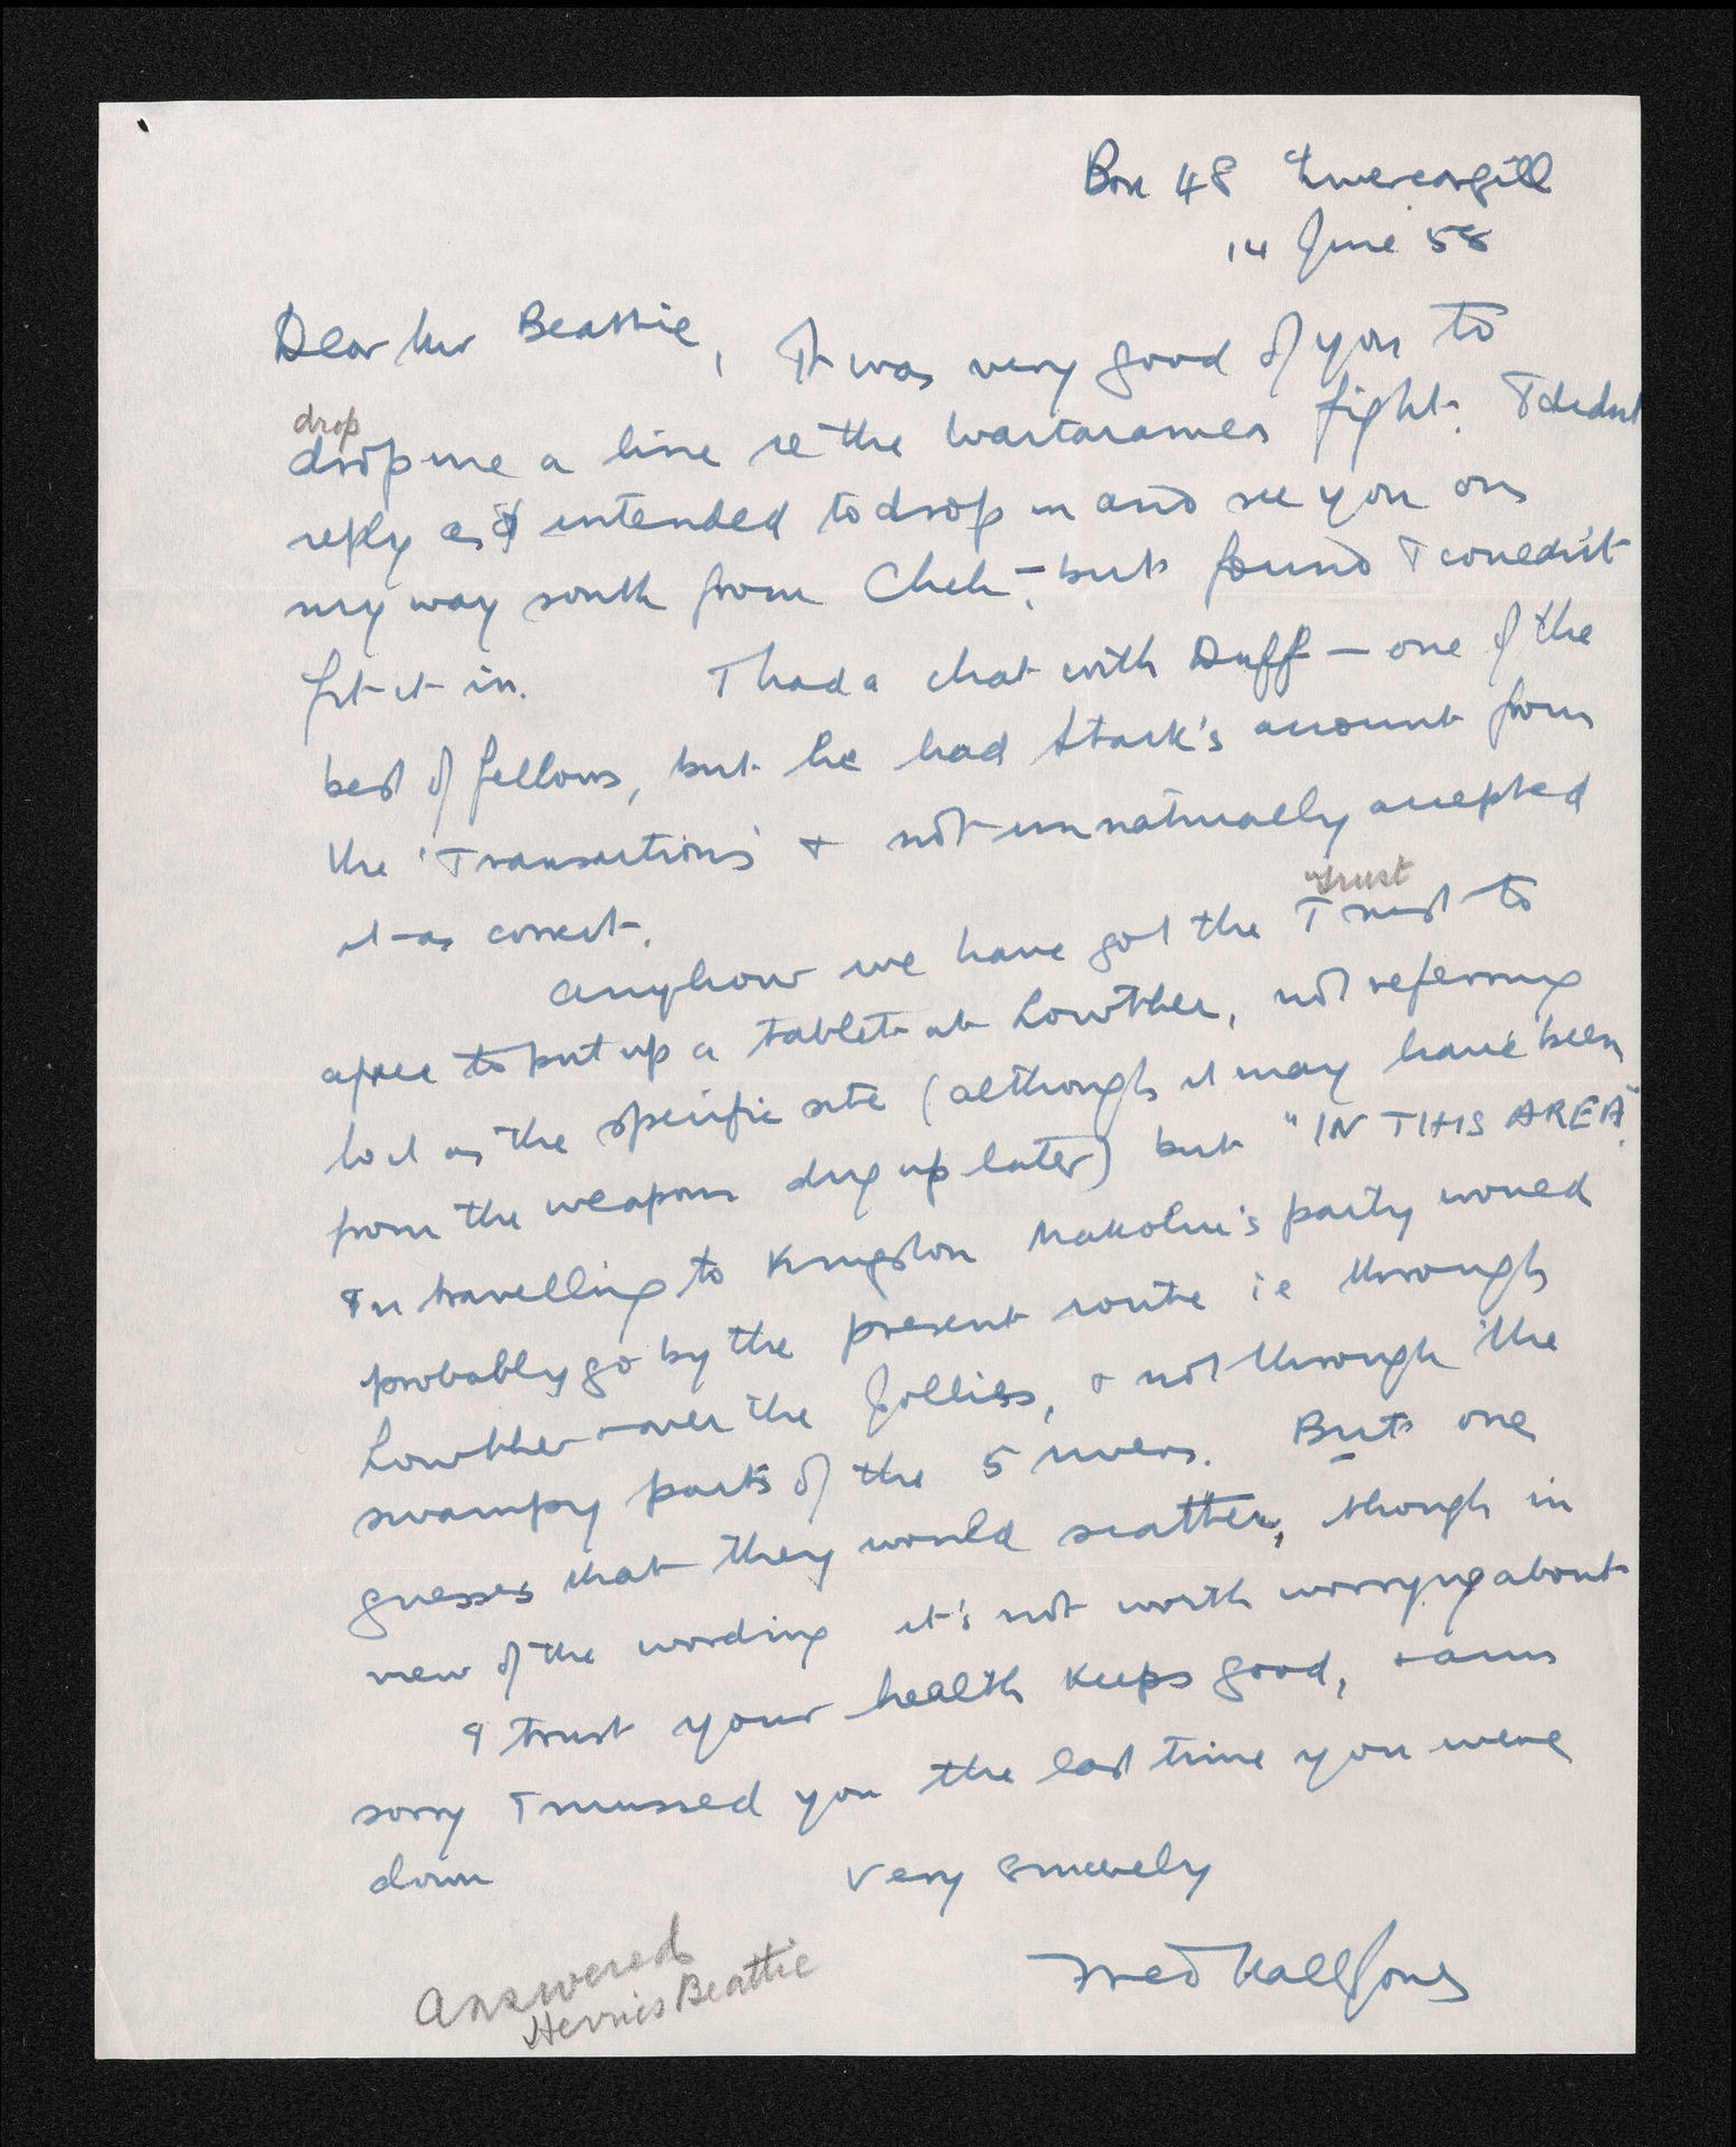 Box 48 Invercargill
14 June 58
Dear Mr Beattie, It was very good of you to
drop
drop me a line re the Waitaramea fight. I didnt
reply as I intended to drop in and see you on
my way south from Chch, but found I couldn't
fit it in. I had a chat with Duff — one of the
best of fellows, but he had Stack's account from
the 'Transactions' & not unnaturally accepted
it as correct.
trust
Anyhow we have got the Trust to
agree to put up a tablet at Lowther, not referring
to it as the specific site (although it may have been
from the weapons dug up later) but "IN THIS AREA".
In travelling to Kingston Makolue's party would
probably go by the present route ie through
Lowther & over the Jollies, & not through the
swampy parts of the 5 rivers. But one
guesses that they would scatter, though in
view of the wording it's not worth worrying about
I trust your health keeps good, & am
sorry I missed you the last time you were
down Very Sincerely
Fred Hall Jones
Answered
Herries Beattie